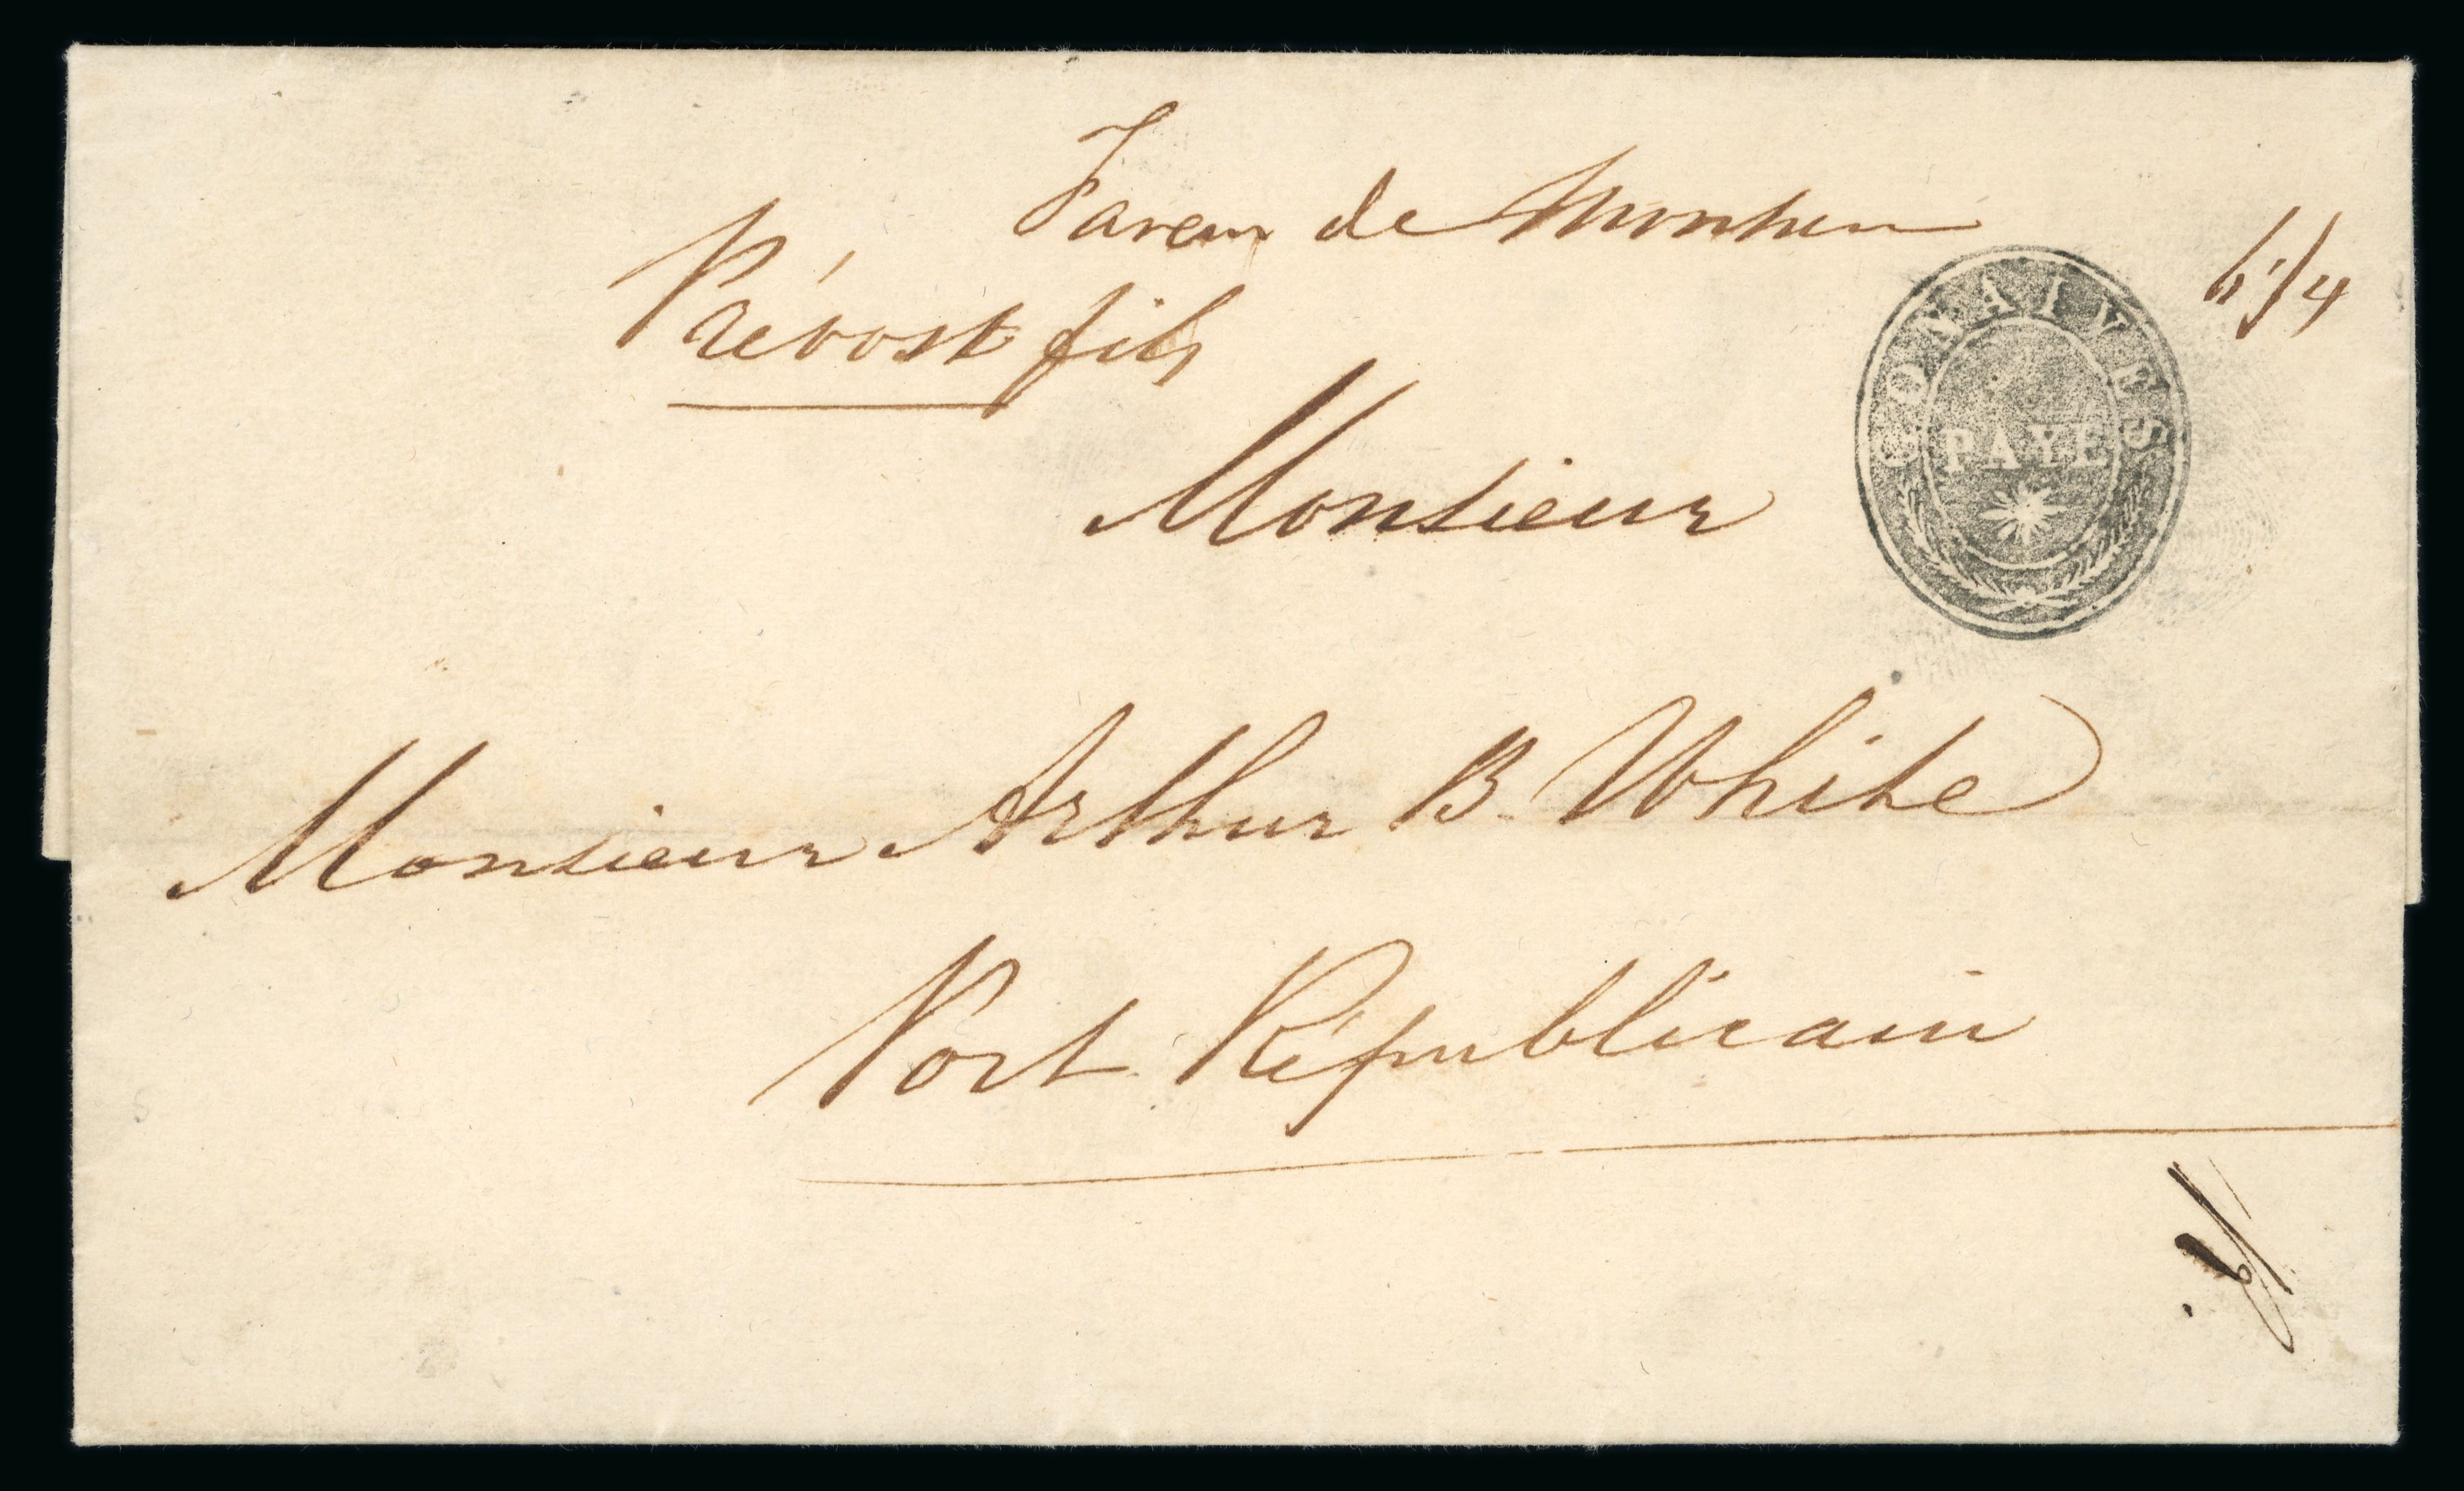 Faveur de Monsieur
Prévost fils
GONAIVES
PAYÉ
Monsieur
Monsieur Arthur B. White
Port Républicain